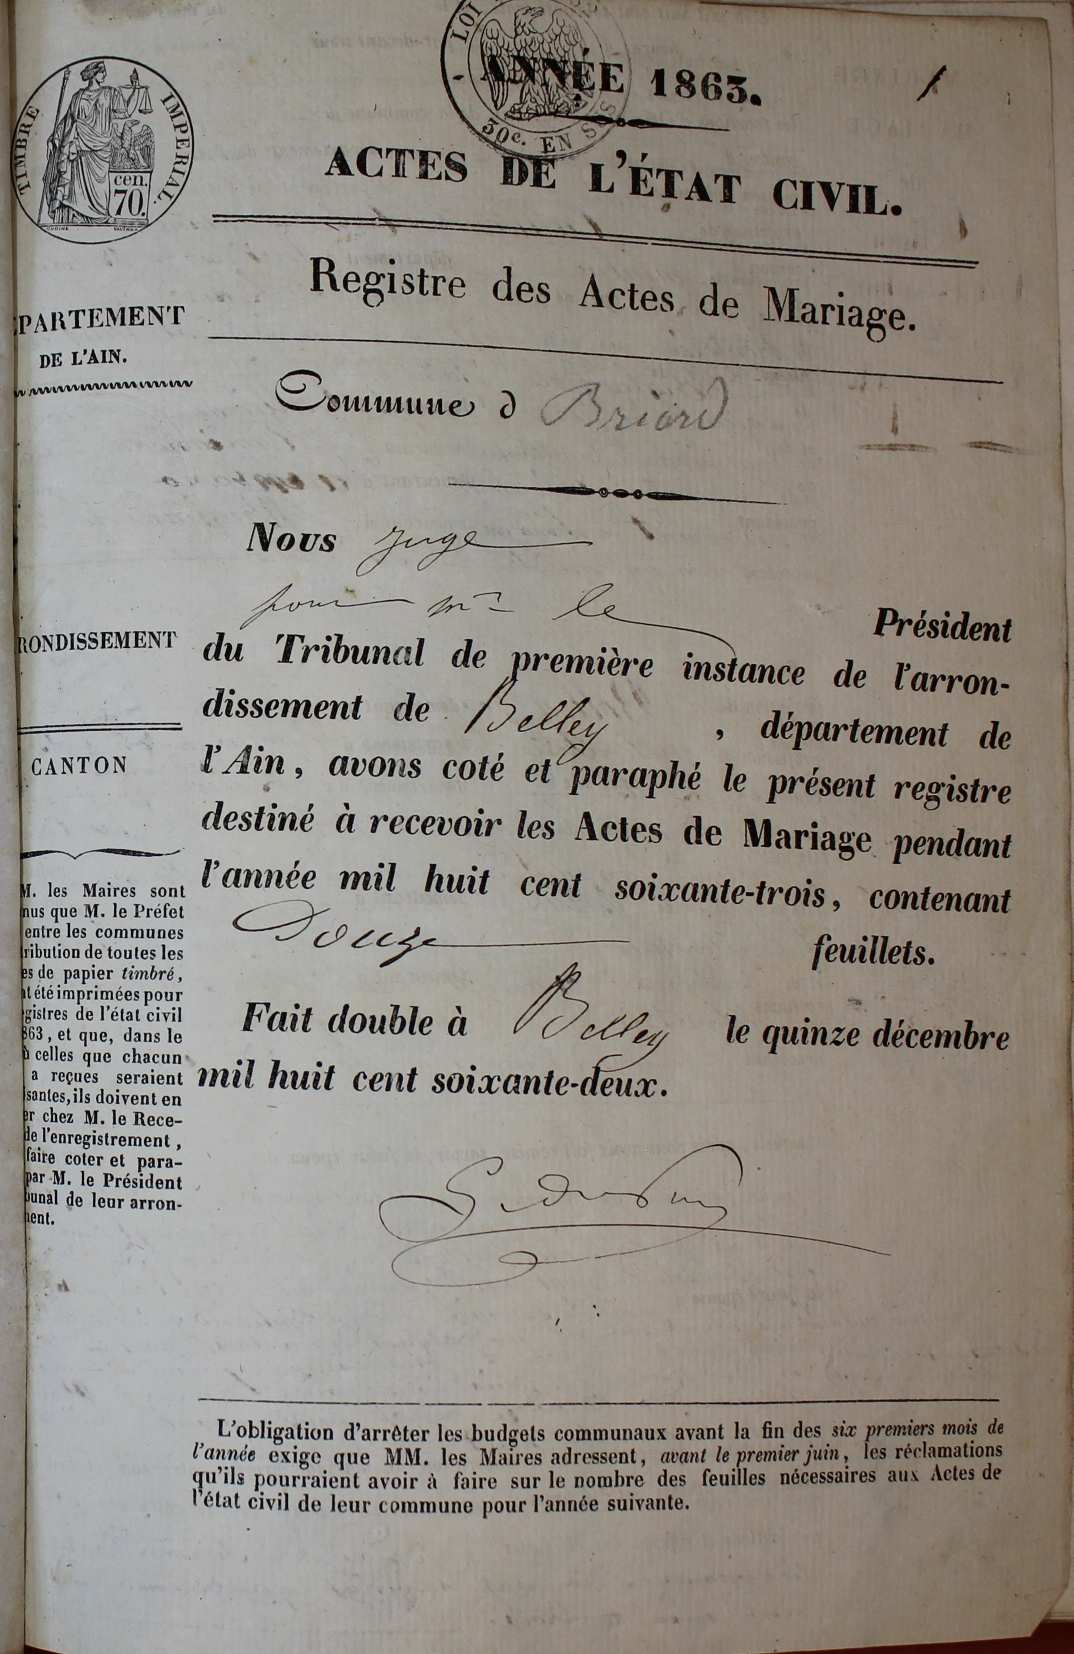 LOI
30c. EN SUS
ANNÉE 1863.
1
TIMBRE IMPERIAL
cen.
70.
ACTES DE L'ÉTAT CIVIL.
Registre des Actes de Mariage.
PARTEMENT
DE L'AIN.
Commune d Briord
Nous juge
pour mr le Président
RONDISSEMENT
du Tribunal de première instance de l'arron-
dissement de Belley, département de
CANTON
l'Ain, avons coté et paraphé le présent registre
destiné à recevoir les Actes de Mariage pendant
l'année mil huit cent soixante-trois, contenant
Douze feuillets.
Fait double à Belley le quinze décembre
mil huit cent soixante-deux.
M. les Maires sont
nus que M. le Préfet
entre les communes
ribution de toutes les
es de papier timbré,
t été imprimées pour
gistres de l'état civil
863, et que, dans le
ù celles que chacun
a reçues seraient
santes, ils doivent en
er chez M. le Rece-
de l'enregistrement,
faire coter et para-
par M. le Président
bunal de leur arron-
ment.
L'obligation d'arrêter les budgets communaux avant la fin des six premiers mois de
l'année exige que MM. les Maires adressent, avant le premier juin, les réclamations
qu'ils pourraient avoir à faire sur le nombre des feuilles nécessaires aux Actes de
l'état civil de leur commune pour l'année suivante.